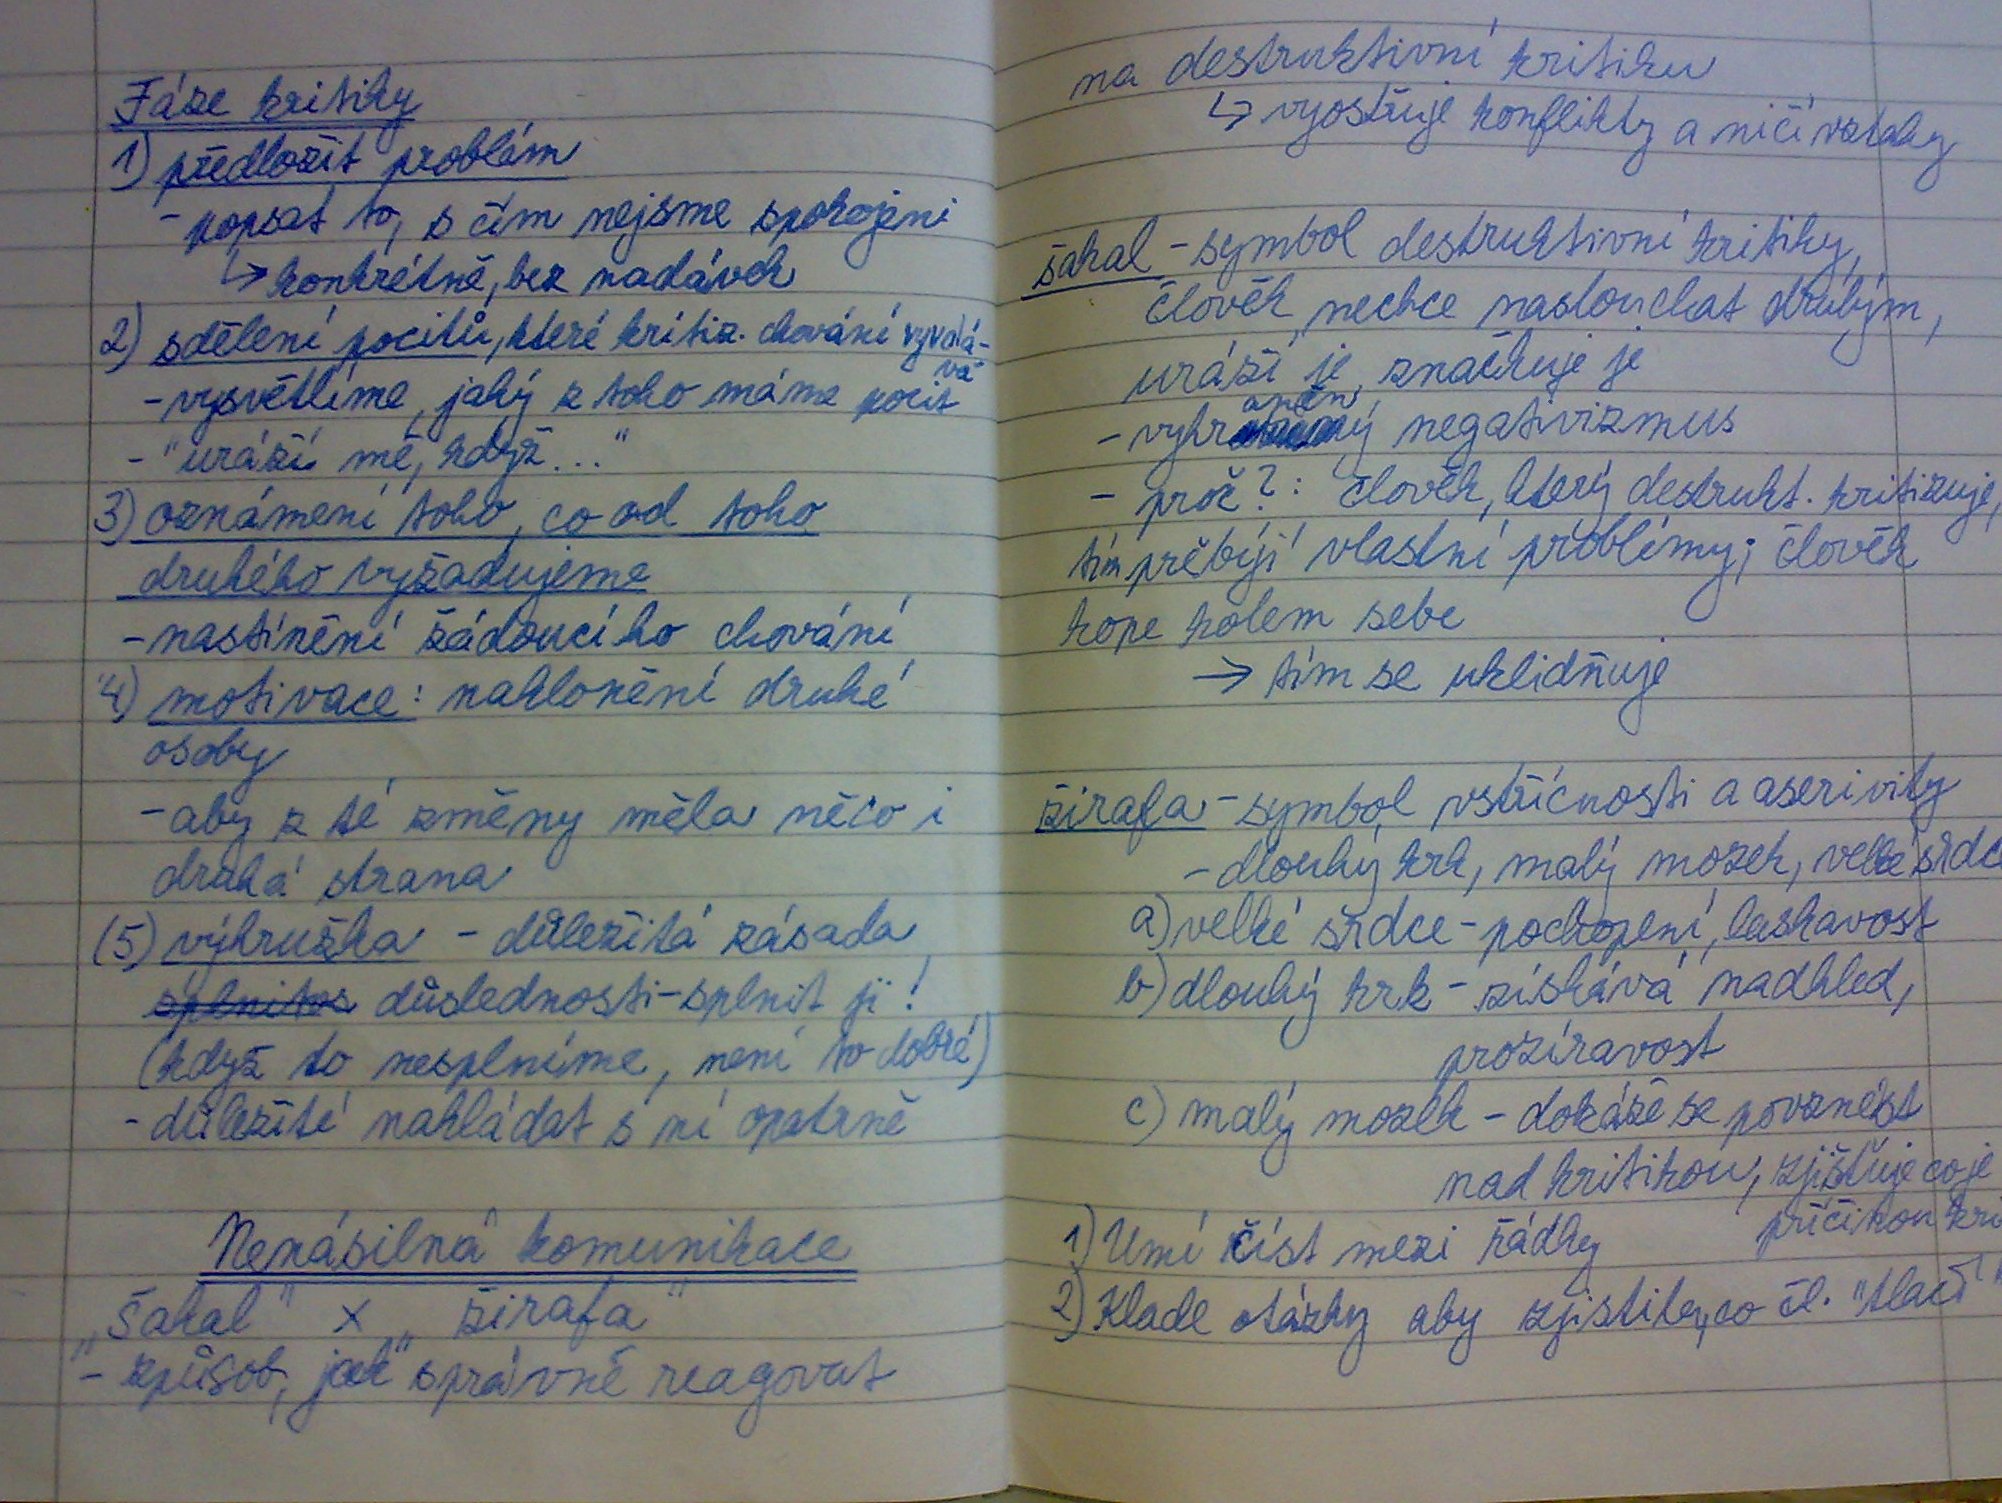 Fáze kritiky
1) předložit problém
- popsat to, s čím nejsme spokojeni
↳ konkrétně, bez nadávek
2) sdělení pocitů, které kritiz. chování vyvolá-
vá
- vysvětlíme, jaký z toho máme pocit
- "uráží mě, když..."
3) oznámení toho, co od toho
druhého vyžadujeme
- nastínění žádoucího chování
4) motivace: naklonění druhé
osoby
- aby z té změny měla něco i
druhá strana
(5) výhružka - důležitá zásada
důslednosti - splnit ji!
(když to nesplníme, není to dobré)
- důležité nakládat s ní opatrně
Nenásilná komunikace
„šakal" x „žirafa"
- způsob, jak správně reagovat
na destruktivní kritiku
↳ vyostřuje konflikty a ničí vztahy
šakal - symbol destruktivní kritiky,
člověk nechce naslouchat druhým,
uráží je, značkuje je
- vyhraněný negativizmus
- proč?: člověk, který destrukt. kritizuje,
tím přebíjí vlastní problémy; člověk
kope kolem sebe
→ tím se uklidňuje
žirafa - symbol vstřícnosti a aserivity
- dlouhý krk, malý mozek, velké srdce
a) velké srdce - pochopení, laskavost
b) dlouhý krk - získává nadhled,
prozíravost
c) malý mozek - dokáže se povznést
nad kritikou, zjišťuje co je
příčinou kri
1) Umí číst mezi řádky
2) Klade otázky aby zjistila, co čl. "tlačí"